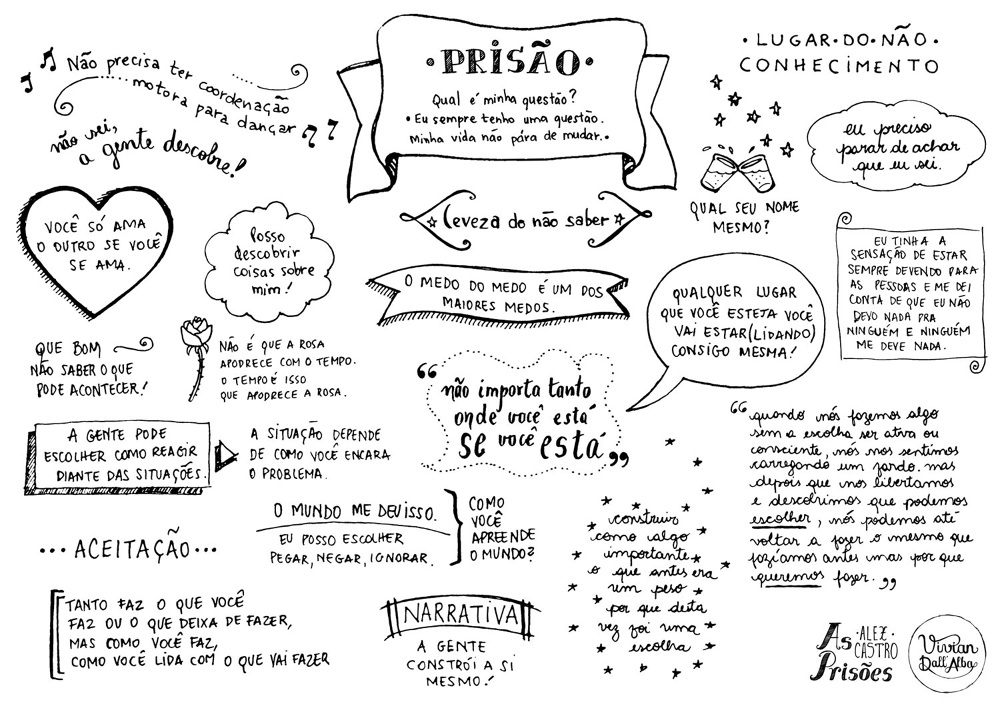 Não precisa ter coordenação
motora para dançar
não sei,
a gente descobre!
VOCÊ SÓ AMA
O OUTRO SE VOCÊ
SE AMA.
Posso
descobrir
coisas sobre
mim!
QUE BOM
NÃO SABER O QUE
PODE ACONTECER!
NÃO É QUE A ROSA
APODRECE COM O TEMPO.
O TEMPO É ISSO
QUE APODRECE A ROSA.
A GENTE PODE
ESCOLHER COMO REAGIR
DIANTE DAS SITUAÇÕES.
A SITUAÇÃO DEPENDE
DE COMO VOCÊ ENCARA
O PROBLEMA.
•PRISÃO•
Qual é minha questão?
•Eu sempre tenho uma questão.
Minha vida não pára de mudar.•
leveza do não saber
O MEDO DO MEDO É UM DOS
MAIORES MEDOS.
“não importa tanto
onde você está
se você está”
•LUGAR•DO•NÃO•
CONHECIMENTO
eu preciso
parar de achar
que eu sei.
QUAL SEU NOME
MESMO?
EU TINHA A
SENSAÇÃO DE ESTAR
SEMPRE DEVENDO PARA
AS PESSOAS E ME DEI
CONTA DE QUE EU NÃO
DEVO NADA PRA
NINGUÉM E NINGUÉM
ME DEVE NADA.
QUALQUER LUGAR
QUE VOCÊ ESTEJA VOCÊ
VAI ESTAR (LIDANDO)
CONSIGO MESMA!
“quando nós fazemos algo
sem a escolha ser ativa ou
consciente, nós nos sentimos
carregando um fardo. mas
depois que nos libertamos
e descobrimos que podemos
escolher, nós podemos até
voltar a fazer o mesmo que
fazíamos antes mas por que
queremos fazer.”
O MUNDO ME DEU ISSO.
EU POSSO ESCOLHER
PEGAR, NEGAR, IGNORAR.
COMO
VOCÊ
APREENDE
O MUNDO?
construir
como algo
importante
o que antes era
um peso
por que desta
vez foi uma
escolha
•••ACEITAÇÃO•••
TANTO FAZ O QUE VOCÊ
FAZ OU O QUE DEIXA DE FAZER,
MAS COMO VOCÊ FAZ,
COMO VOCÊ LIDA COM O QUE VAI FAZER
NARRATIVA
A GENTE
CONSTRÓI A SI
MESMO!
As
•ALEX•
CASTRO
Prisões
Vivian
Dall'Alba